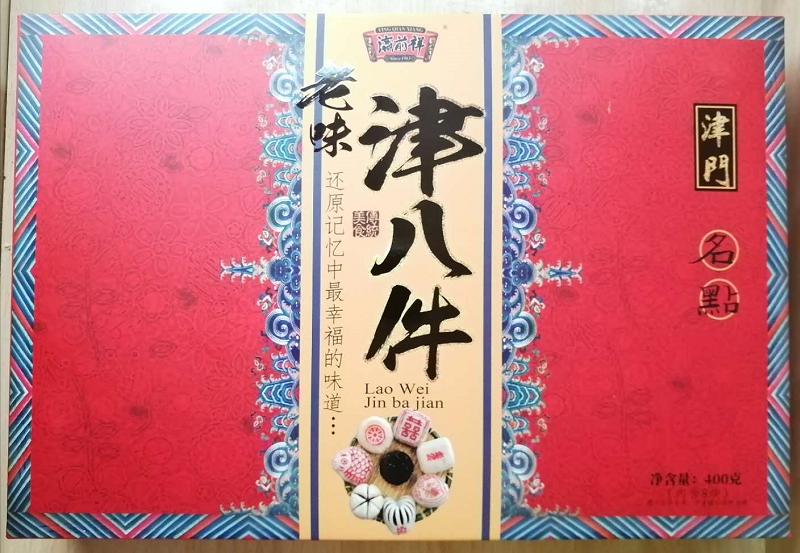 YING QIAN XIANG
瀛前祥
Since 1913
老味
津八件
還原记忆中最幸福的味道…
傳統
美食
Lao Wei
Jin ba jian
囍
津門
名點
净含量：400克
（内含8块）